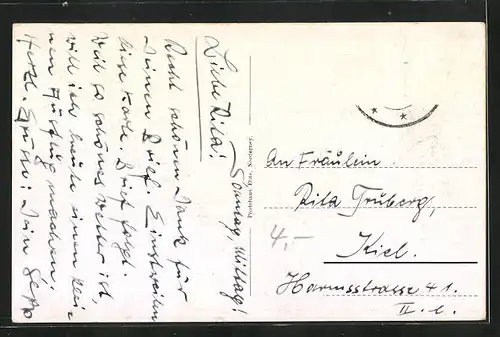 Sonntag, Mittag!
Liebe Rita!
Recht schönen Dank für
Deinen Brief. Einstweilen
diese Karte. Brief folgt.
Weil so schönes Wetter ist,
will ich heute einen klei-
nen Ausflug machen.
Herzl. Grüsse: Dein
An Fräulein
Rita Truberg,
Kiel.
Harmsstrasse 41.
II. l.
4,-